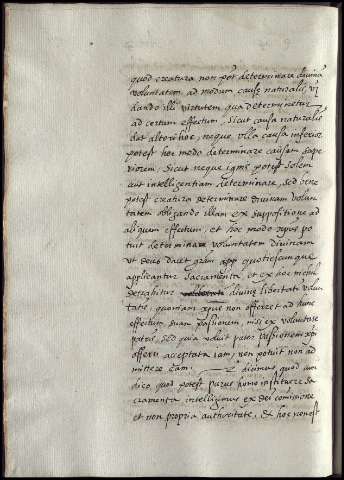 quod creatura non pot determinare divina
voluntatem ad modum causæ naturalis,
dando illi virtutem qua determinetur
ad certum effectum, sicut causa naturalis
dat alteri hoc, neque ulla causa inferior
potest hoc modo determinare causam supe
riorem, sicut neque ignis potest solem
aut intelligentiam determinare, sed bene
potest creatura determinare divinam volun
tatem obligando illam ex suppositione ad
aliquem effectum, et hoc modo xpus po
tuit determinare voluntatem divinam
ut deus daret gram quotiescunque
applicantur sacramenta, et ex hoc nichil
detrahitur divinæ libertati volun
tatis, quoniam xpus non offerret ad hunc
effectum suam passionem, nisi ex voluntate
patris, sed quia voluit pater passionem xpi
offerri acceptata iam, non potuit non ad
mittere eam. dicimus quod cum
dico quod potest purus homo instituere sa
cramenta intelligimus ex dei comissione
et non propria authoritate, & hoc non est